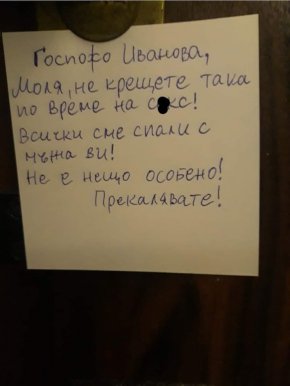 Госпожо Иванова,
Моля, не крещете така
по време на с кс!
Всички сме спали с
мъжа ви!
Не е нещо особено!
Прекалявате!